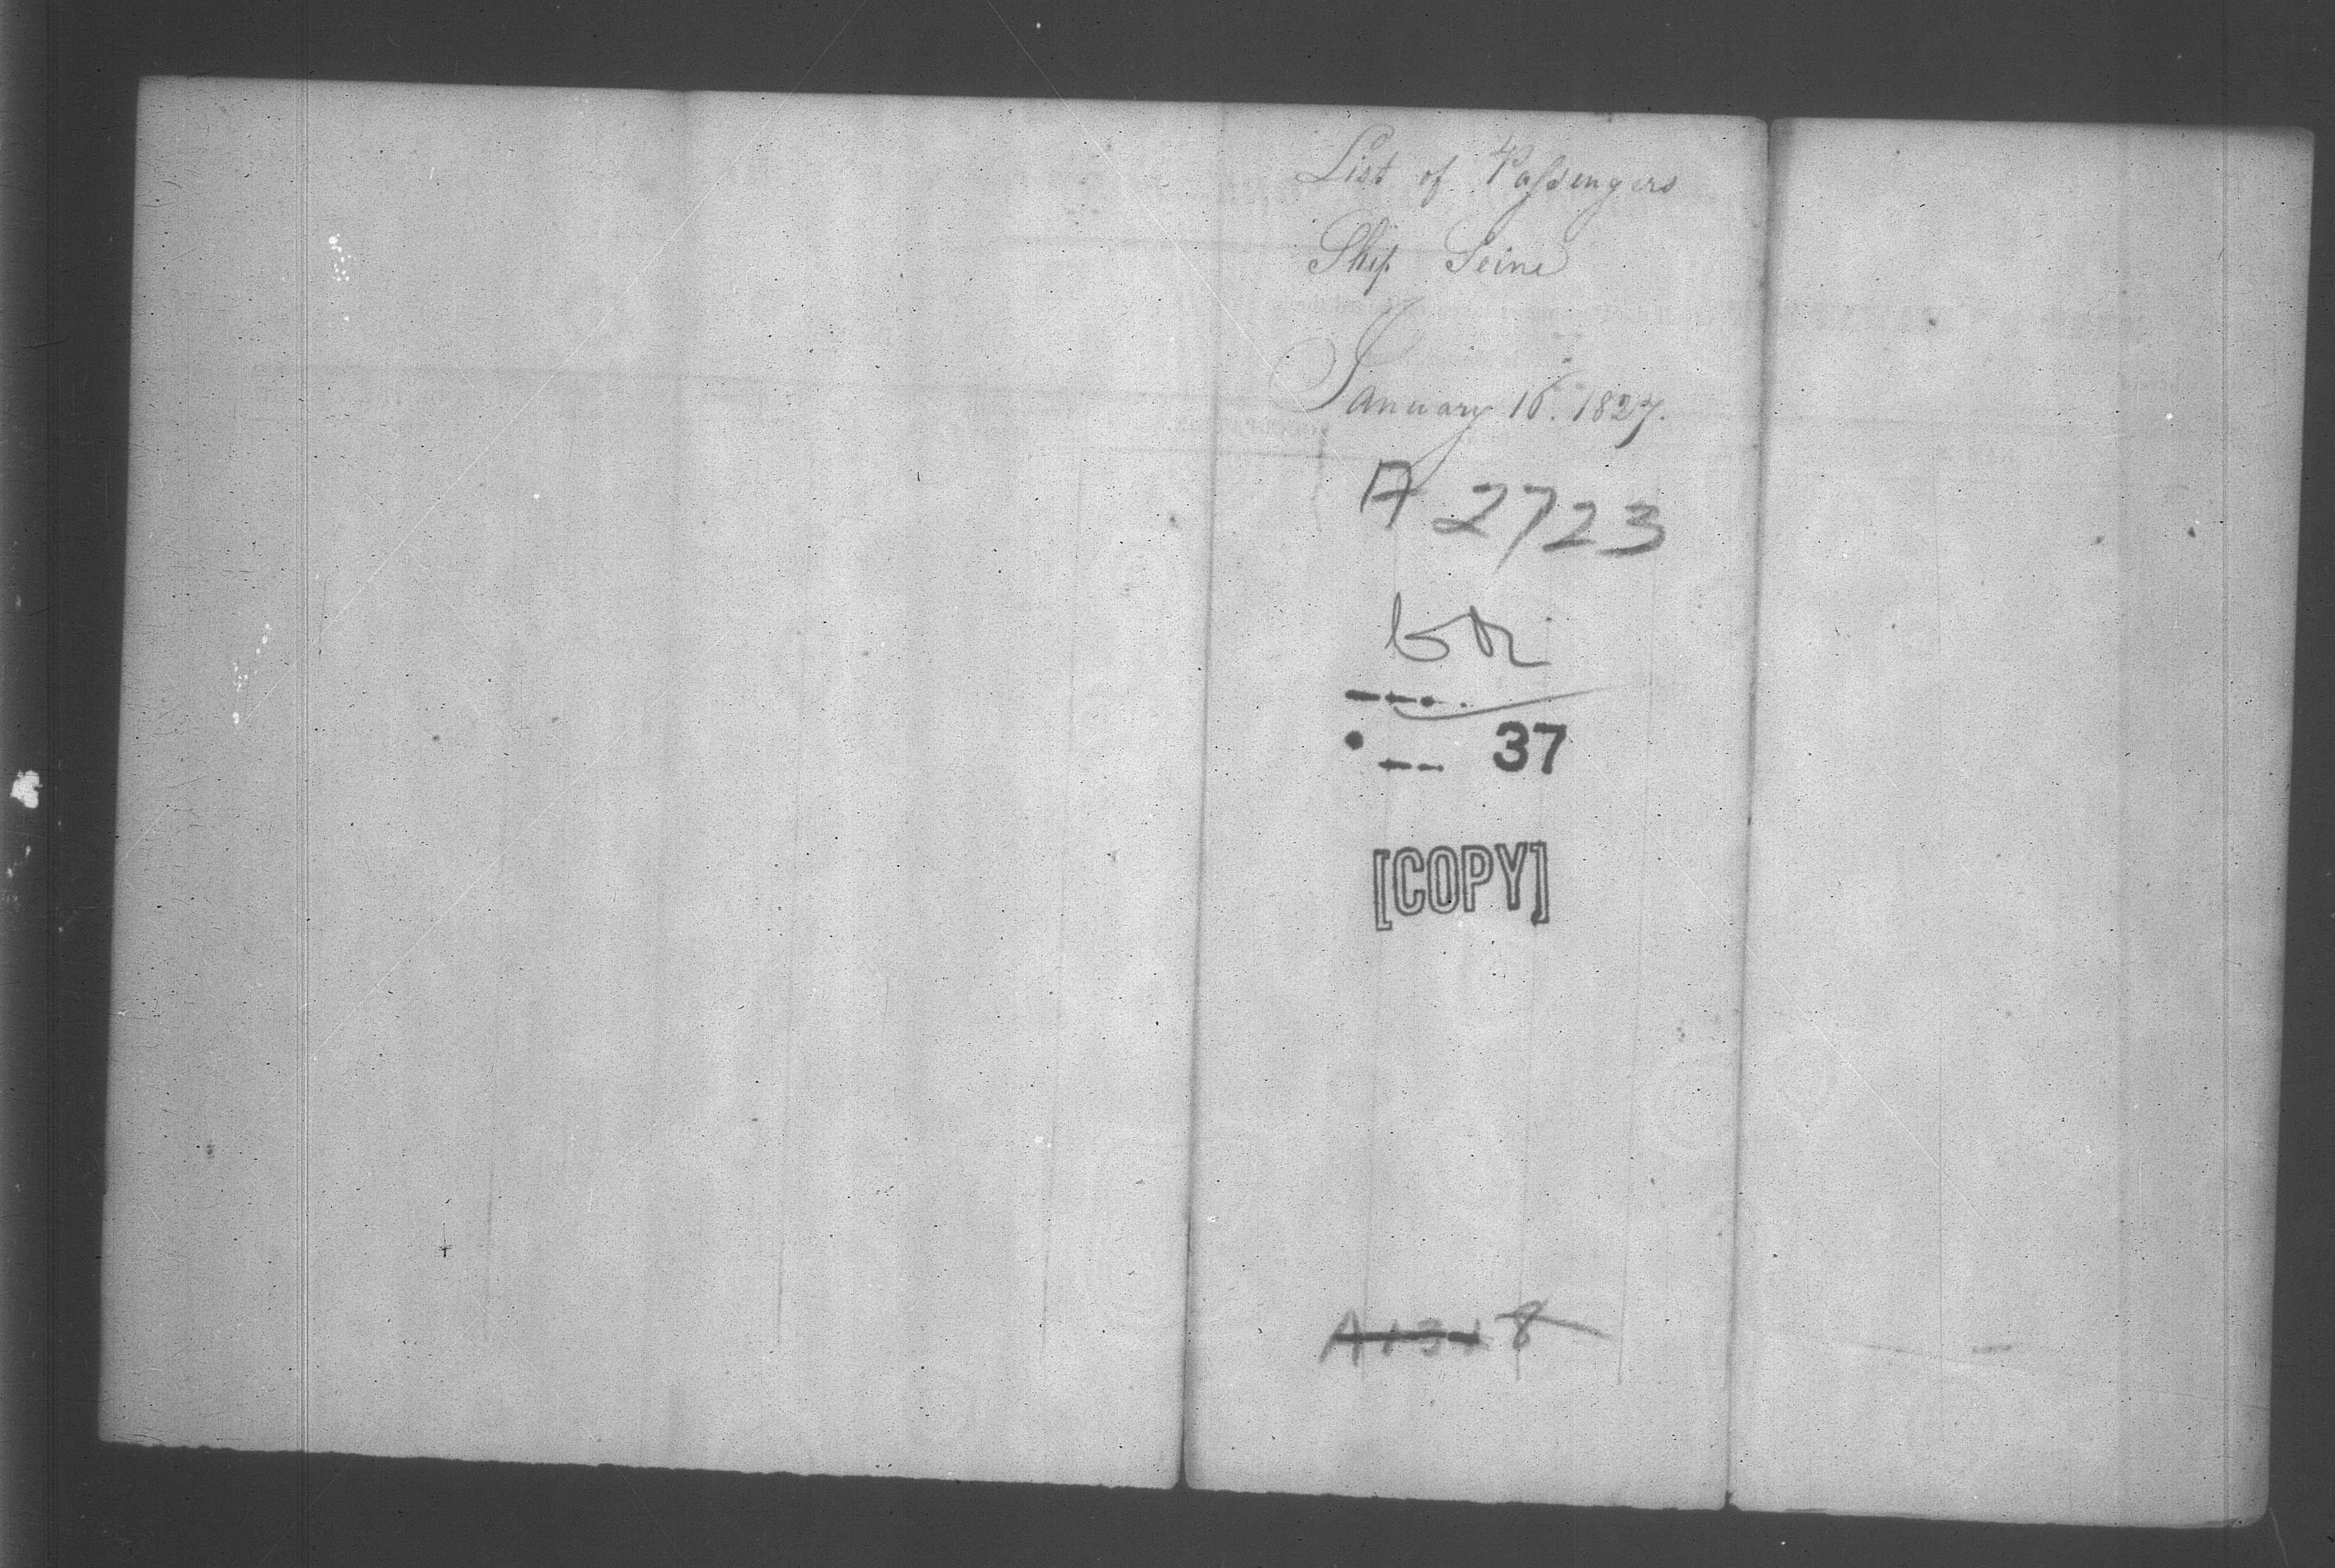 List of Passengers
Ship Seine
January 16. 1827.
A 2723
37
[COPY]